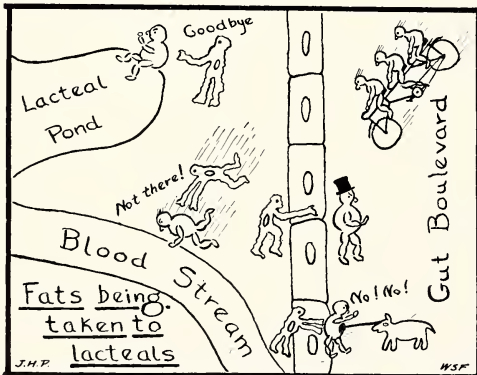 Goodbye
Lacteal
Pond
Not there!
Blood Stream
Gut Boulevard
No! No!
Fats being
taken to
lacteals
J.H.P.
WSF